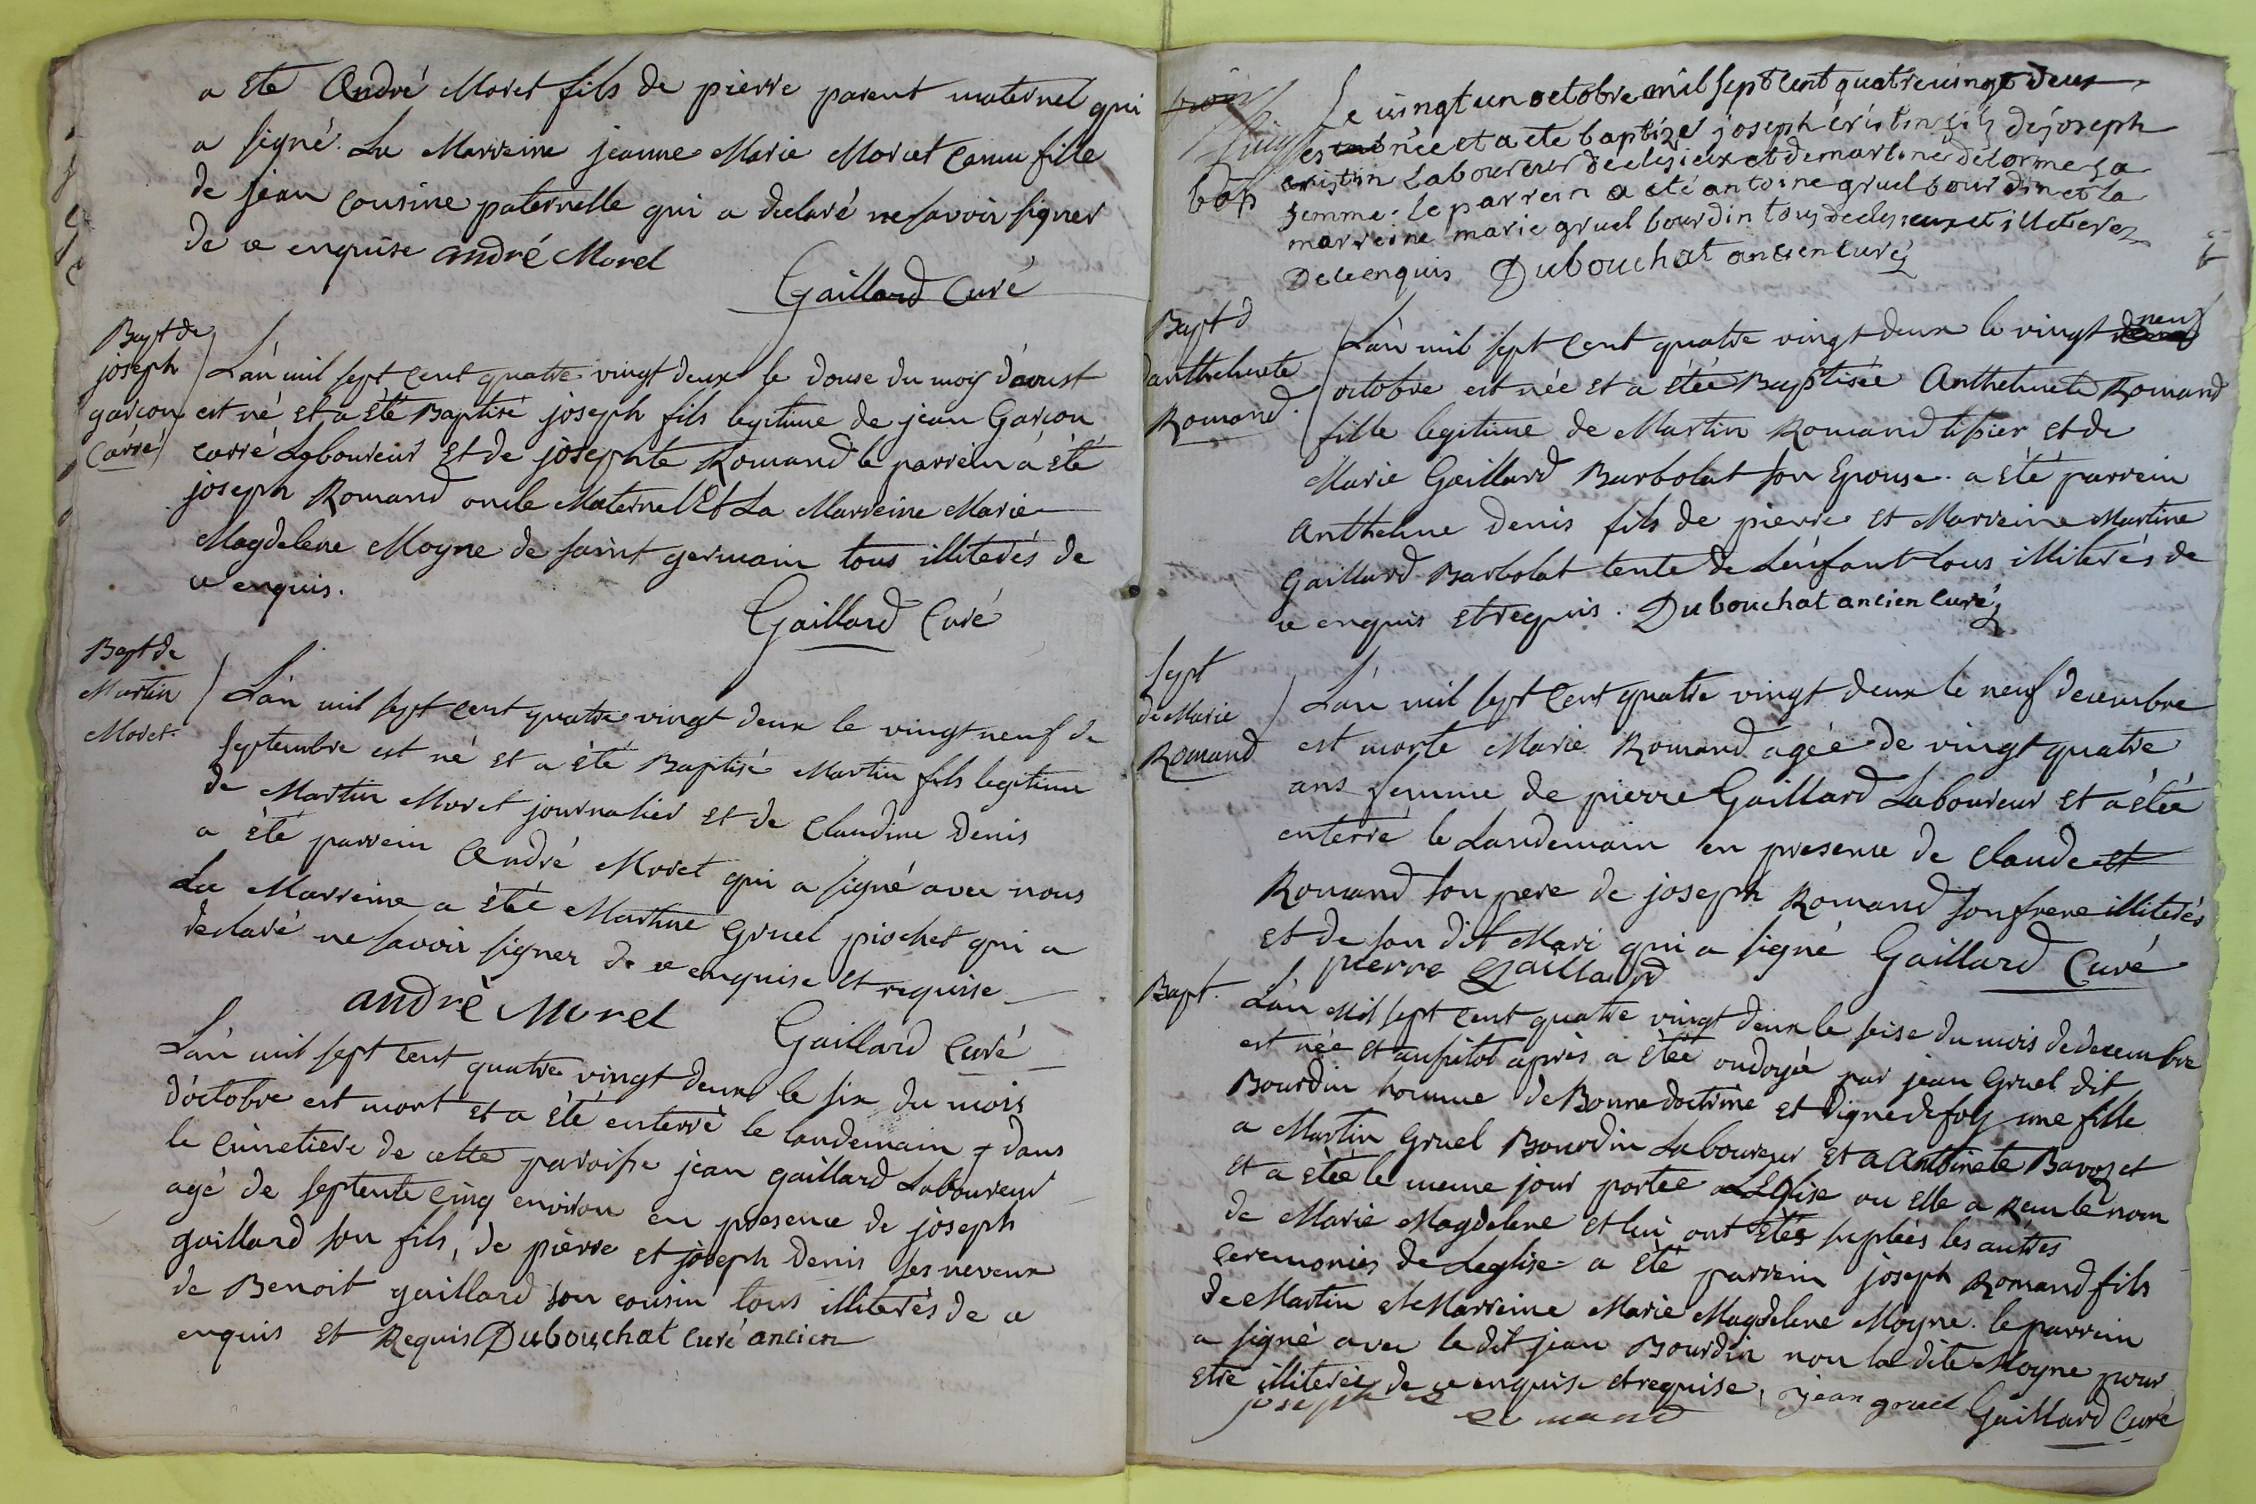 a Ete André Moret fils de pierre parent maternel qui
a signé. La Marreine jeanne Marie Moret fille
de jean Cousine paternelle qui a declaré ne savoir signer
de ce enquise andré Morel
Gaillard Curé
Bapt de
joseph
garcon
Carré
L'an mil sept Cent quatre vingt deux le douse du moy d'aoust
est né et a èté Baptisé joseph fils legitime de jean Garcon
carré Laboureur Et de jòsephte Romand le parrein a èté
joseph Romand oncle Maternel Et La Marreine Marie
Magdelene Moyne de saint germain tous illiterés de
ce enquis.
Gaillard Curé
Bapt de
Martin
Moret.
L'an mil sept cent quatre vingt deux le vingt neuf de
septembre est né et a èté Baptisé Martin fils legitime
de Martin Moret journalier et de Claudine Denis
a èté parrein André Moret qui a signé avec nous
La Marreine a èté Martine Gruel piochet qui a
declaré ne savoir signer de ce enquise et requise
andrè Morel
Gaillard Curé
L'an mil sept cent quatre vingt deux le six du mois
d'octobre est mort et a èté enterré le landemain dans
le cimetiere de cette paroisse jean gaillard Laboureur
agé de septente cinq environ en presence de jòseph
gaillard son fils, de pièrre et jòseph Denis ses neveux
de Benoit gaillard son cousin tous illiterés de ce
enquis et Requis Dubouchat curé ancien
bap
Le vingt un octobre mil sept cent quatre vingt deux
est née et a ete baptizé joseph cristin fils de joseph
cristin Laboureur declesieux et de martine delorme sa
femme. le parrein a eté antoine gruel bourdin et la
marreine marie gruel bourdin tous declesieux et illiterez
De ce enquis Dubouchat ancien curé
Bapt d
danthelmete
Romand.
L'an mil sept cent quatre vingt deux le vingt neuf
octobre est née et a étée Baptisée Anthelmete Romand
fille legitime de Martin Romand tissier et de
Marie Gaillard Barbolat son Epouse. a èté parrein
Anthelme Denis fils de pierre et Marreine Martine
Gaillard Barbolat tente de L'enfant tous illiterés de
ce enquis et requis. Dubouchat ancien curé
Sept
de Marie
Romand
L'an mil sept Cent quatre vingt deux le neuf decembre
est morte Marie Romand agée de vingt quatre
ans femme de pierre Gaillard Laboureur et a étée
enterré le Landemain en presence de Claude et
Romand son pere de joseph Romand son frere illiterés
et de son dit Mari qui a signé Gaillard Curé
pierre Gaillard
Bapt.
L'an Mil sept Cent quatre vingt deux le seise du mois de decembre
est née et aussitot aprés a étée ondoyé par jean Gruel dit
Bourdin homme de Bonne doctrine et digne de foy une fille
a Martin Gruel Bourdin Laboureur et a Antoinete Bavozet
et a etée le meme jour portée a L'Eglise ou Elle a Recu le nom
de Marie Magdelene et lui ont étés suplées les autres
ceremonies de Leglise a èté parrein joseph Romand fils
de Martin et Marreine Marie Magdelene Moyne. le parrein
a signé avec le dit jean Bourdin non la dite Moyne pour
etre illiterée de ce enquise et requise, jean gruel Gaillard Curé
joseph Romand